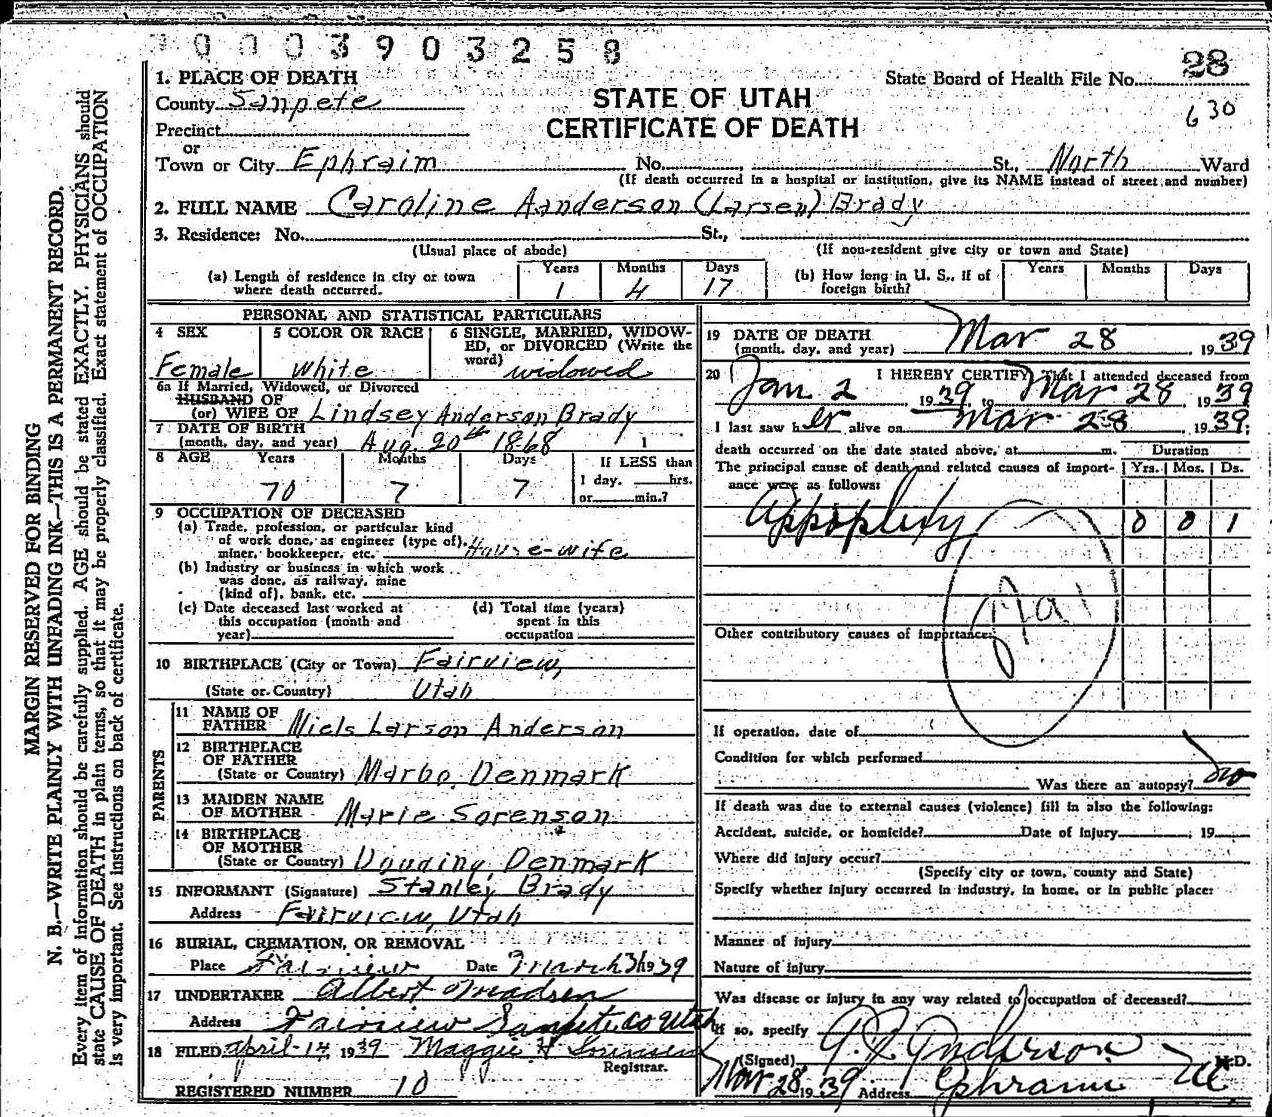 0003903258
28
1. PLACE OF DEATH
State Board of Health File No.
County Sanpete
STATE OF UTAH
630
Precinct
CERTIFICATE OF DEATH
or
Town or City Ephraim No. St., North Ward
(If death occurred in a hospital or institution, give its NAME instead of street and number)
2. FULL NAME Caroline Aanderson (Larsen) Brady
3. Residence: No. St.,
(Usual place of abode) (If non-resident give city or town and State)
(a) Length of residence in city or town where death occurred. Years 1 Months 4 Days 17
(b) How long in U. S., if of foreign birth? Years Months Days
PERSONAL AND STATISTICAL PARTICULARS
4 SEX Female
5 COLOR OR RACE White
6 SINGLE, MARRIED, WIDOWED, or DIVORCED (Write the word) widowed
6a If Married, Widowed, or Divorced
HUSBAND OF
(or) WIFE OF Lindsey Anderson Brady
7 DATE OF BIRTH
(month, day, and year) Aug. 20th 1868
8 AGE Years 70 Months 7 Days 7
If LESS than
1 day, hrs.
or min.?
9 OCCUPATION OF DECEASED
(a) Trade, profession, or particular kind
of work done, as engineer (type of),
miner, bookkeeper, etc. House-wife
(b) Industry or business in which work
was done, as railway, mine
(kind of), bank, etc.
(c) Date deceased last worked at
this occupation (month and
year)
(d) Total time (years)
spent in this
occupation
10 BIRTHPLACE (City or Town) Fairview,
(State or Country) Utah
PARENTS
11 NAME OF
FATHER Niels Larson Anderson
12 BIRTHPLACE
OF FATHER
(State or Country) Marbo, Denmark
13 MAIDEN NAME
OF MOTHER Marie Sorenson
14 BIRTHPLACE
OF MOTHER
(State or Country) Denmark
15 INFORMANT (Signature) Stanley Brady
Address Fairview, Utah
16 BURIAL, CREMATION, OR REMOVAL
Place Fairview Date March 31 1939
17 UNDERTAKER Albert Madsen
Address Fairview Sanpete co Utah
18 FILED april-14, 1939 Maggie H
Registrar.
REGISTERED NUMBER 10
19 DATE OF DEATH
(month, day, and year) Mar 28, 1939
20 I HEREBY CERTIFY That I attended deceased from
Jan 2 1939, to Mar 28 1939
I last saw her alive on Mar 28 1939;
death occurred on the date stated above, at m.
Duration
The principal cause of death and related causes of importance were as follows:
Yrs. Mos. Ds.
Appoplexy 0 0 1
Other contributory causes of importance:
If operation, date of
Condition for which performed
Was there an autopsy? no
If death was due to external causes (violence) fill in also the following:
Accident, suicide, or homicide? Date of injury , 19
Where did injury occur?
(Specify city or town, county and State)
Specify whether injury occurred in industry, in home, or in public place:
Manner of injury
Nature of injury
Was disease or injury in any way related to occupation of deceased?
If so, specify
(Signed) Anderson M.D.
Mar 28 1939 Address Ephraim
MARGIN RESERVED FOR BINDING
N. B.—WRITE PLAINLY WITH UNFADING INK—THIS IS A PERMANENT RECORD.
Every item of information should be carefully supplied. AGE should be stated EXACTLY. PHYSICIANS should
state CAUSE OF DEATH in plain terms, so that it may be properly classified. Exact statement of OCCUPATION
is very important. See instructions on back of certificate.